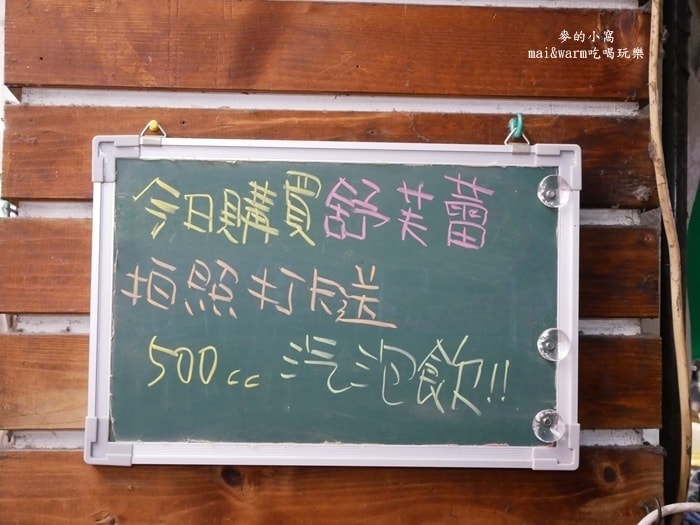 麥的小窩
mai&warm吃喝玩樂
今日購買舒芙蕾
拍照打卡送
500cc 汽泡飲!!